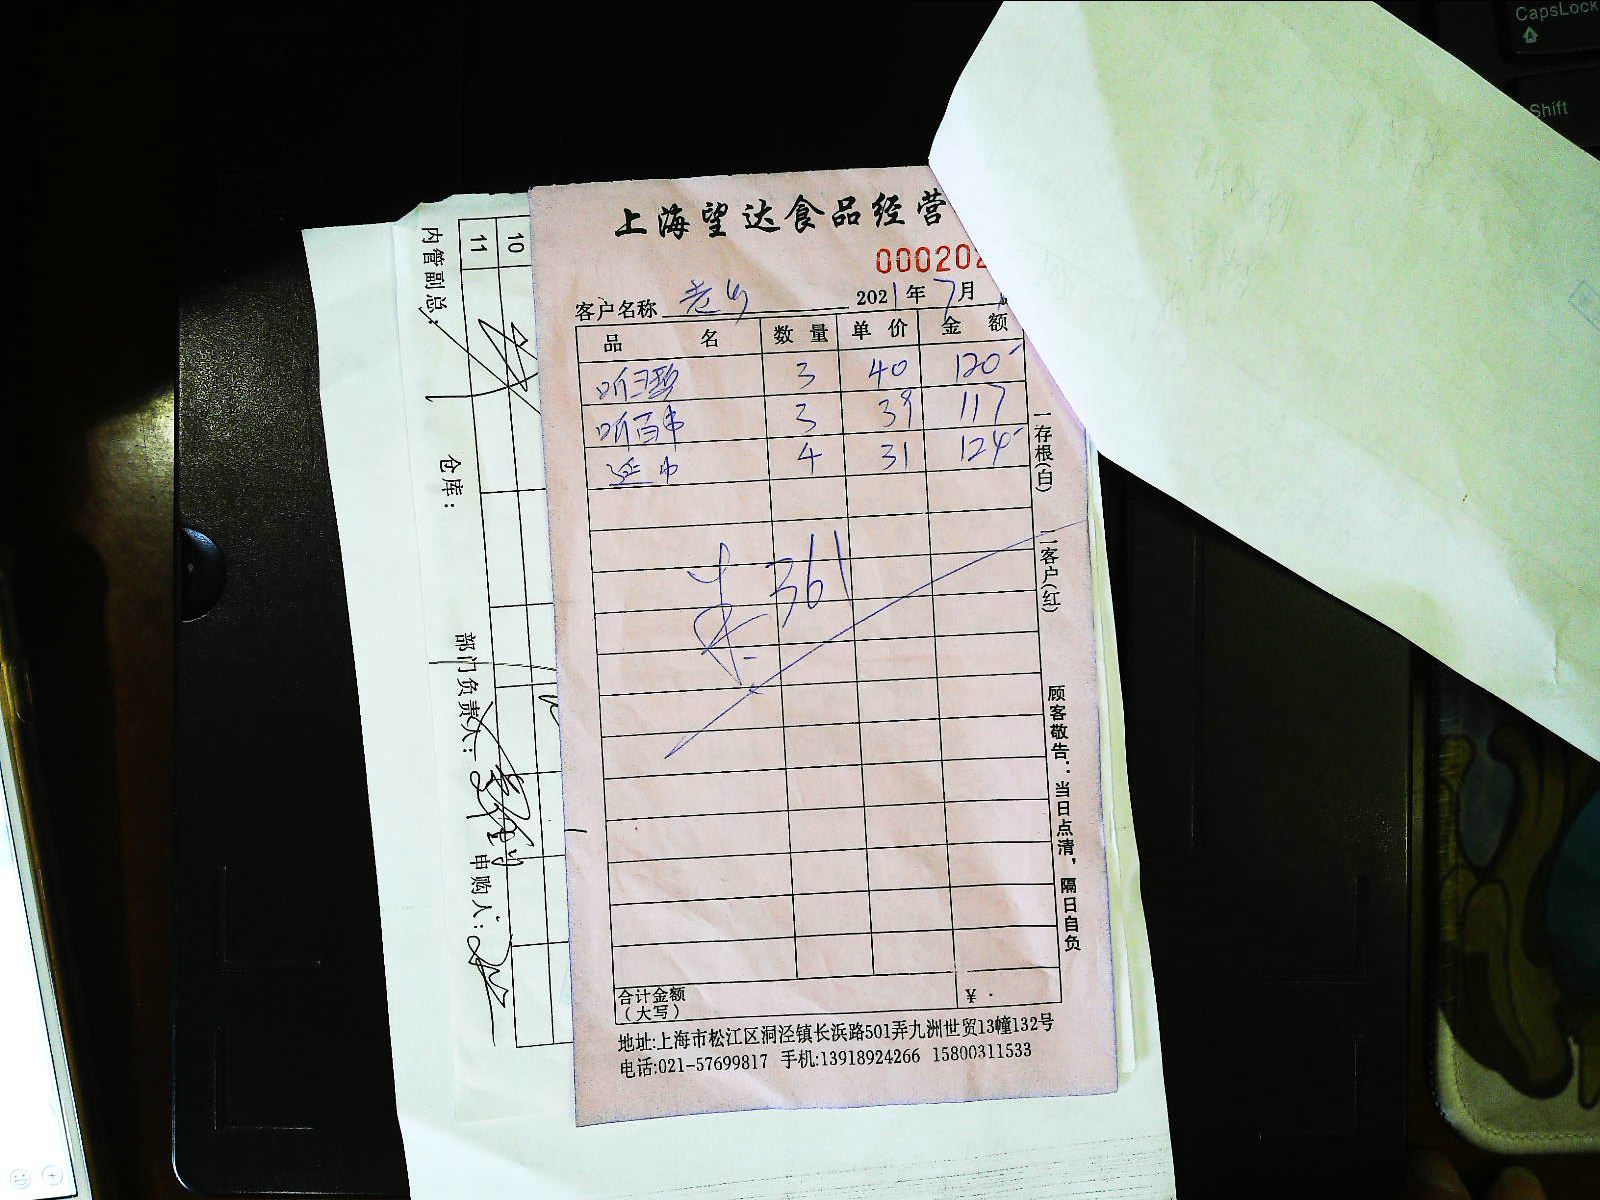 上海望达食品经营
000202
客户名称 老乡 2021年7月
品名 数量 单价 金额
听可乐 3 40 120
听百事 3 39 117
延中 4 31 124
未 361
合计金额
(大写) ¥
地址:上海市松江区洞泾镇长浜路501弄九洲世贸13幢132号
电话:021-57699817 手机:13918924266 15800311533
一存根(白)
一客户(红)
顾客敬告:当日点清,隔日自负
10
11
内管副总:
仓库:
部门负责人:
申购人:
CapsLock
Shift